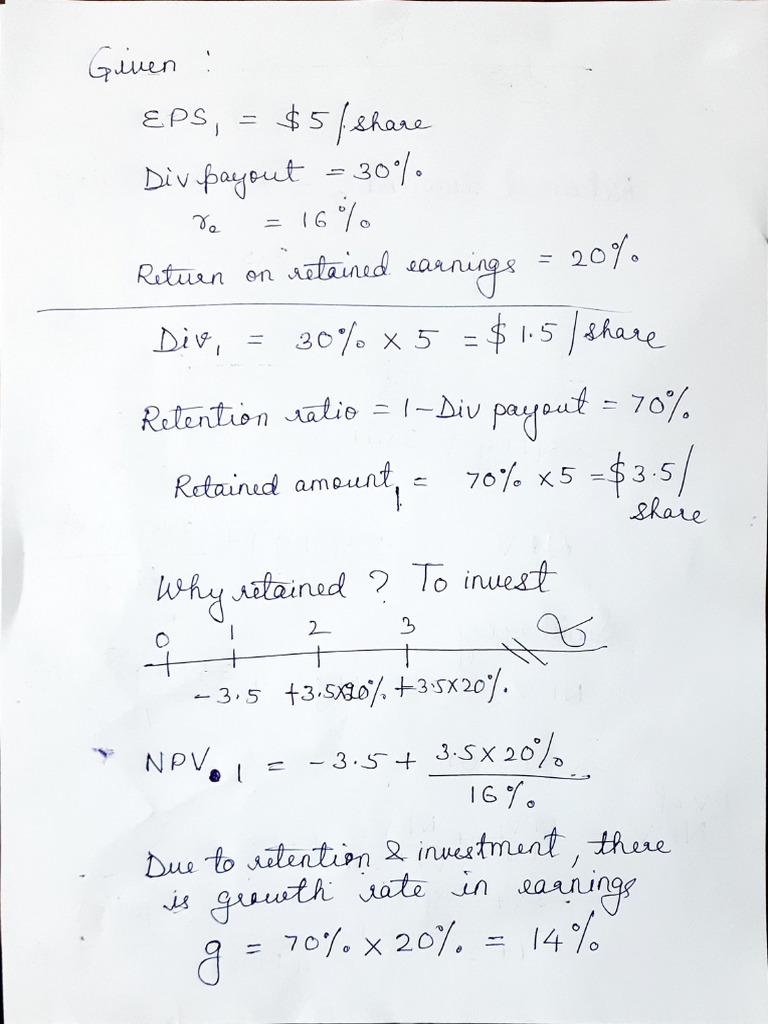 Given :
EPS₁ = $5/share
Div payout = 30%
rₑ = 16%
Return on retained earnings = 20%
Div₁ = 30% × 5 = $1.5/share
Retention ratio = 1 – Div payout = 70%
Retained amount₁ = 70% × 5 = $3.5/
share
Why retained ? To invest
0 1 2 3 ∞
-3.5 +3.5×20% +3.5×20%
NPV₁ = -3.5 + 3.5 × 20%
16%
Due to retention & investment, there
is growth rate in earnings
g = 70% × 20% = 14%